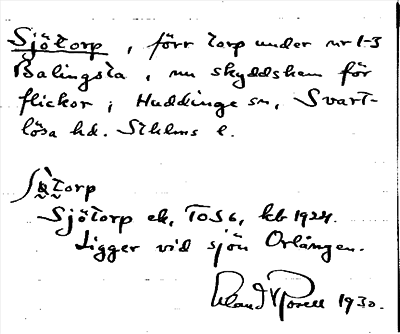 Sjötorp, förr torp under nr 1-3
Balingsta, nu skyddshem för
flickor; Huddinge sn, Svart-
lösa hd. Sthlms l.
Sjötorp ek, TOS6, kb 1924.
Ligger vid sjön Orlången.
1930.